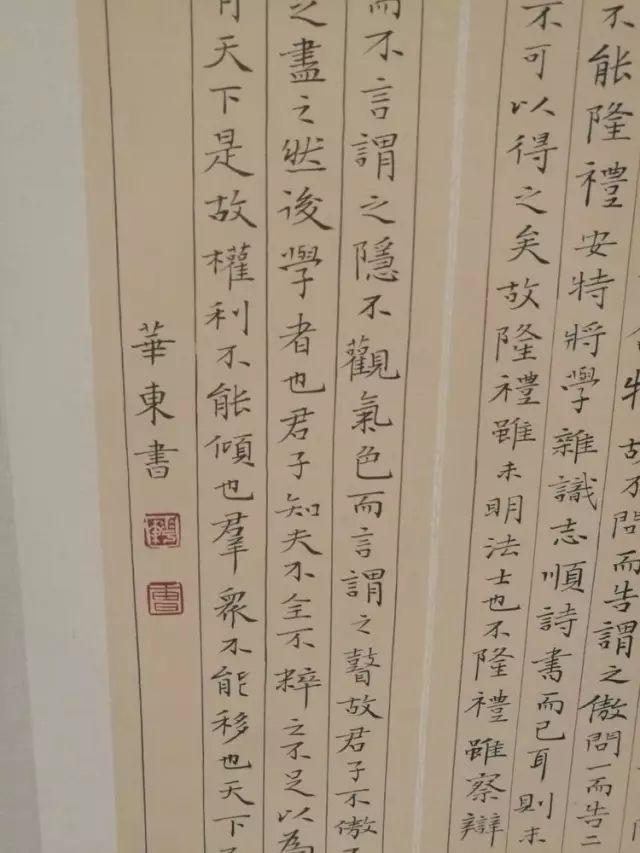 故不問而告謂之傲問一而告二
不能隆禮安特將學雜識志順詩書而已耳則末
不可以得之矣故隆禮雖未明法士也不隆禮雖察辯
而不言謂之隱不觀氣色而言謂之瞽故君子不傲
之盡之然後學者也君子知夫不全不粹之不足以為
天下是故權利不能傾也羣衆不能移也天下
華東書